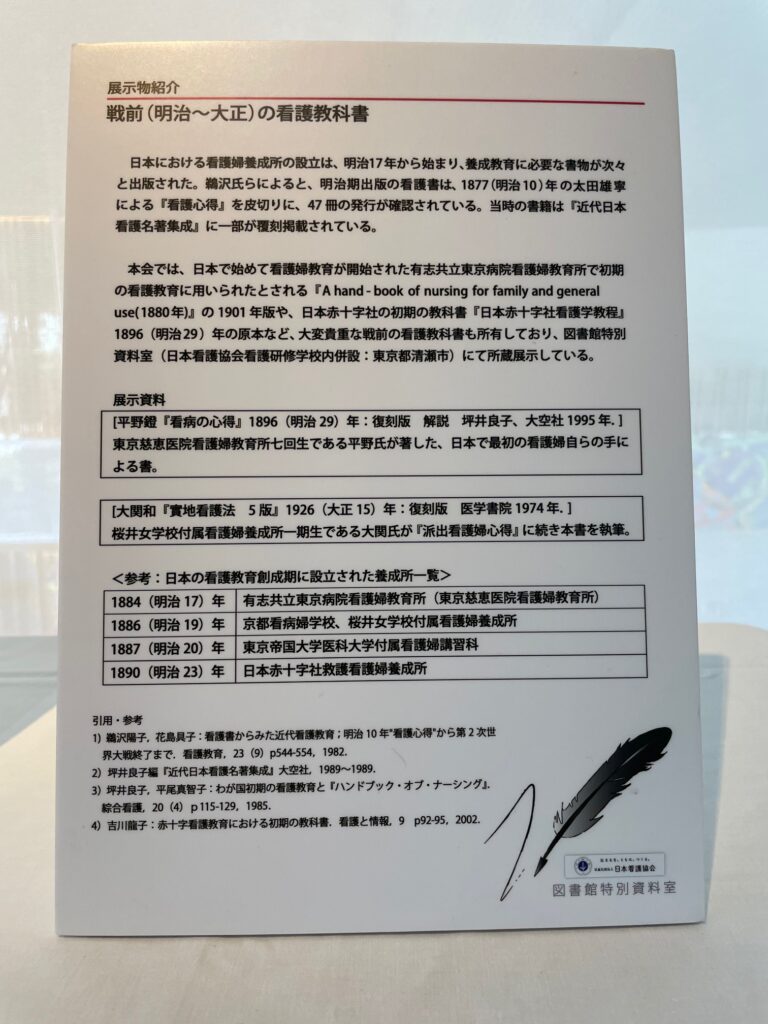 展示物紹介
戦前（明治～大正）の看護教科書
日本における看護婦養成所の設立は、明治17年から始まり、養成教育に必要な書物が次々
と出版された。鵜沢氏らによると、明治期出版の看護書は、1877（明治10）年の太田雄寧
による『看護心得』を皮切りに、47冊の発行が確認されている。当時の書籍は『近代日本
看護名著集成』に一部が覆刻掲載されている。
本会では、日本で始めて看護婦教育が開始された有志共立東京病院看護婦教育所で初期
の看護教育に用いられたとされる『A hand - book of nursing for family and general
use(1880年)』の1901年版や、日本赤十字社の初期の教科書『日本赤十字社看護学教程』
1896（明治29）年の原本など、大変貴重な戦前の看護教科書も所有しており、図書館特別
資料室（日本看護協会看護研修学校内併設：東京都清瀬市）にて所蔵展示している。
展示資料
[平野鐙『看病の心得』1896（明治29）年：復刻版　解説　坪井良子、大空社1995年. ]
東京慈恵医院看護婦教育所七回生である平野氏が著した、日本で最初の看護婦自らの手に
よる書。
[大関和『實地看護法　5版』1926（大正15）年：復刻版　医学書院1974年. ]
桜井女学校付属看護婦養成所一期生である大関氏が『派出看護婦心得』に続き本書を執筆。
＜参考：日本の看護教育創成期に設立された養成所一覧＞
1884（明治17）年　有志共立東京病院看護婦教育所（東京慈恵医院看護婦教育所）
1886（明治19）年　京都看病婦学校、桜井女学校付属看護婦養成所
1887（明治20）年　東京帝国大学医科大学付属看護婦講習科
1890（明治23）年　日本赤十字社救護看護婦養成所
引用・参考
1）鵜沢陽子，花島具子：看護書からみた近代看護教育；明治10年"看護心得"から第2次世
界大戦終了まで．看護教育，23（9）p544-554，1982.
2）坪井良子編『近代日本看護名著集成』大空社，1989～1989.
3）坪井良子，平尾真智子：わが国初期の看護教育と『ハンドブック・オブ・ナーシング』．
綜合看護，20（4）p115-129，1985.
4）吉川龍子：赤十字看護教育における初期の教科書．看護と情報，9　p92-95，2002.
生きるを、ともに、つくる。
公益社団法人 日本看護協会
図書館特別資料室